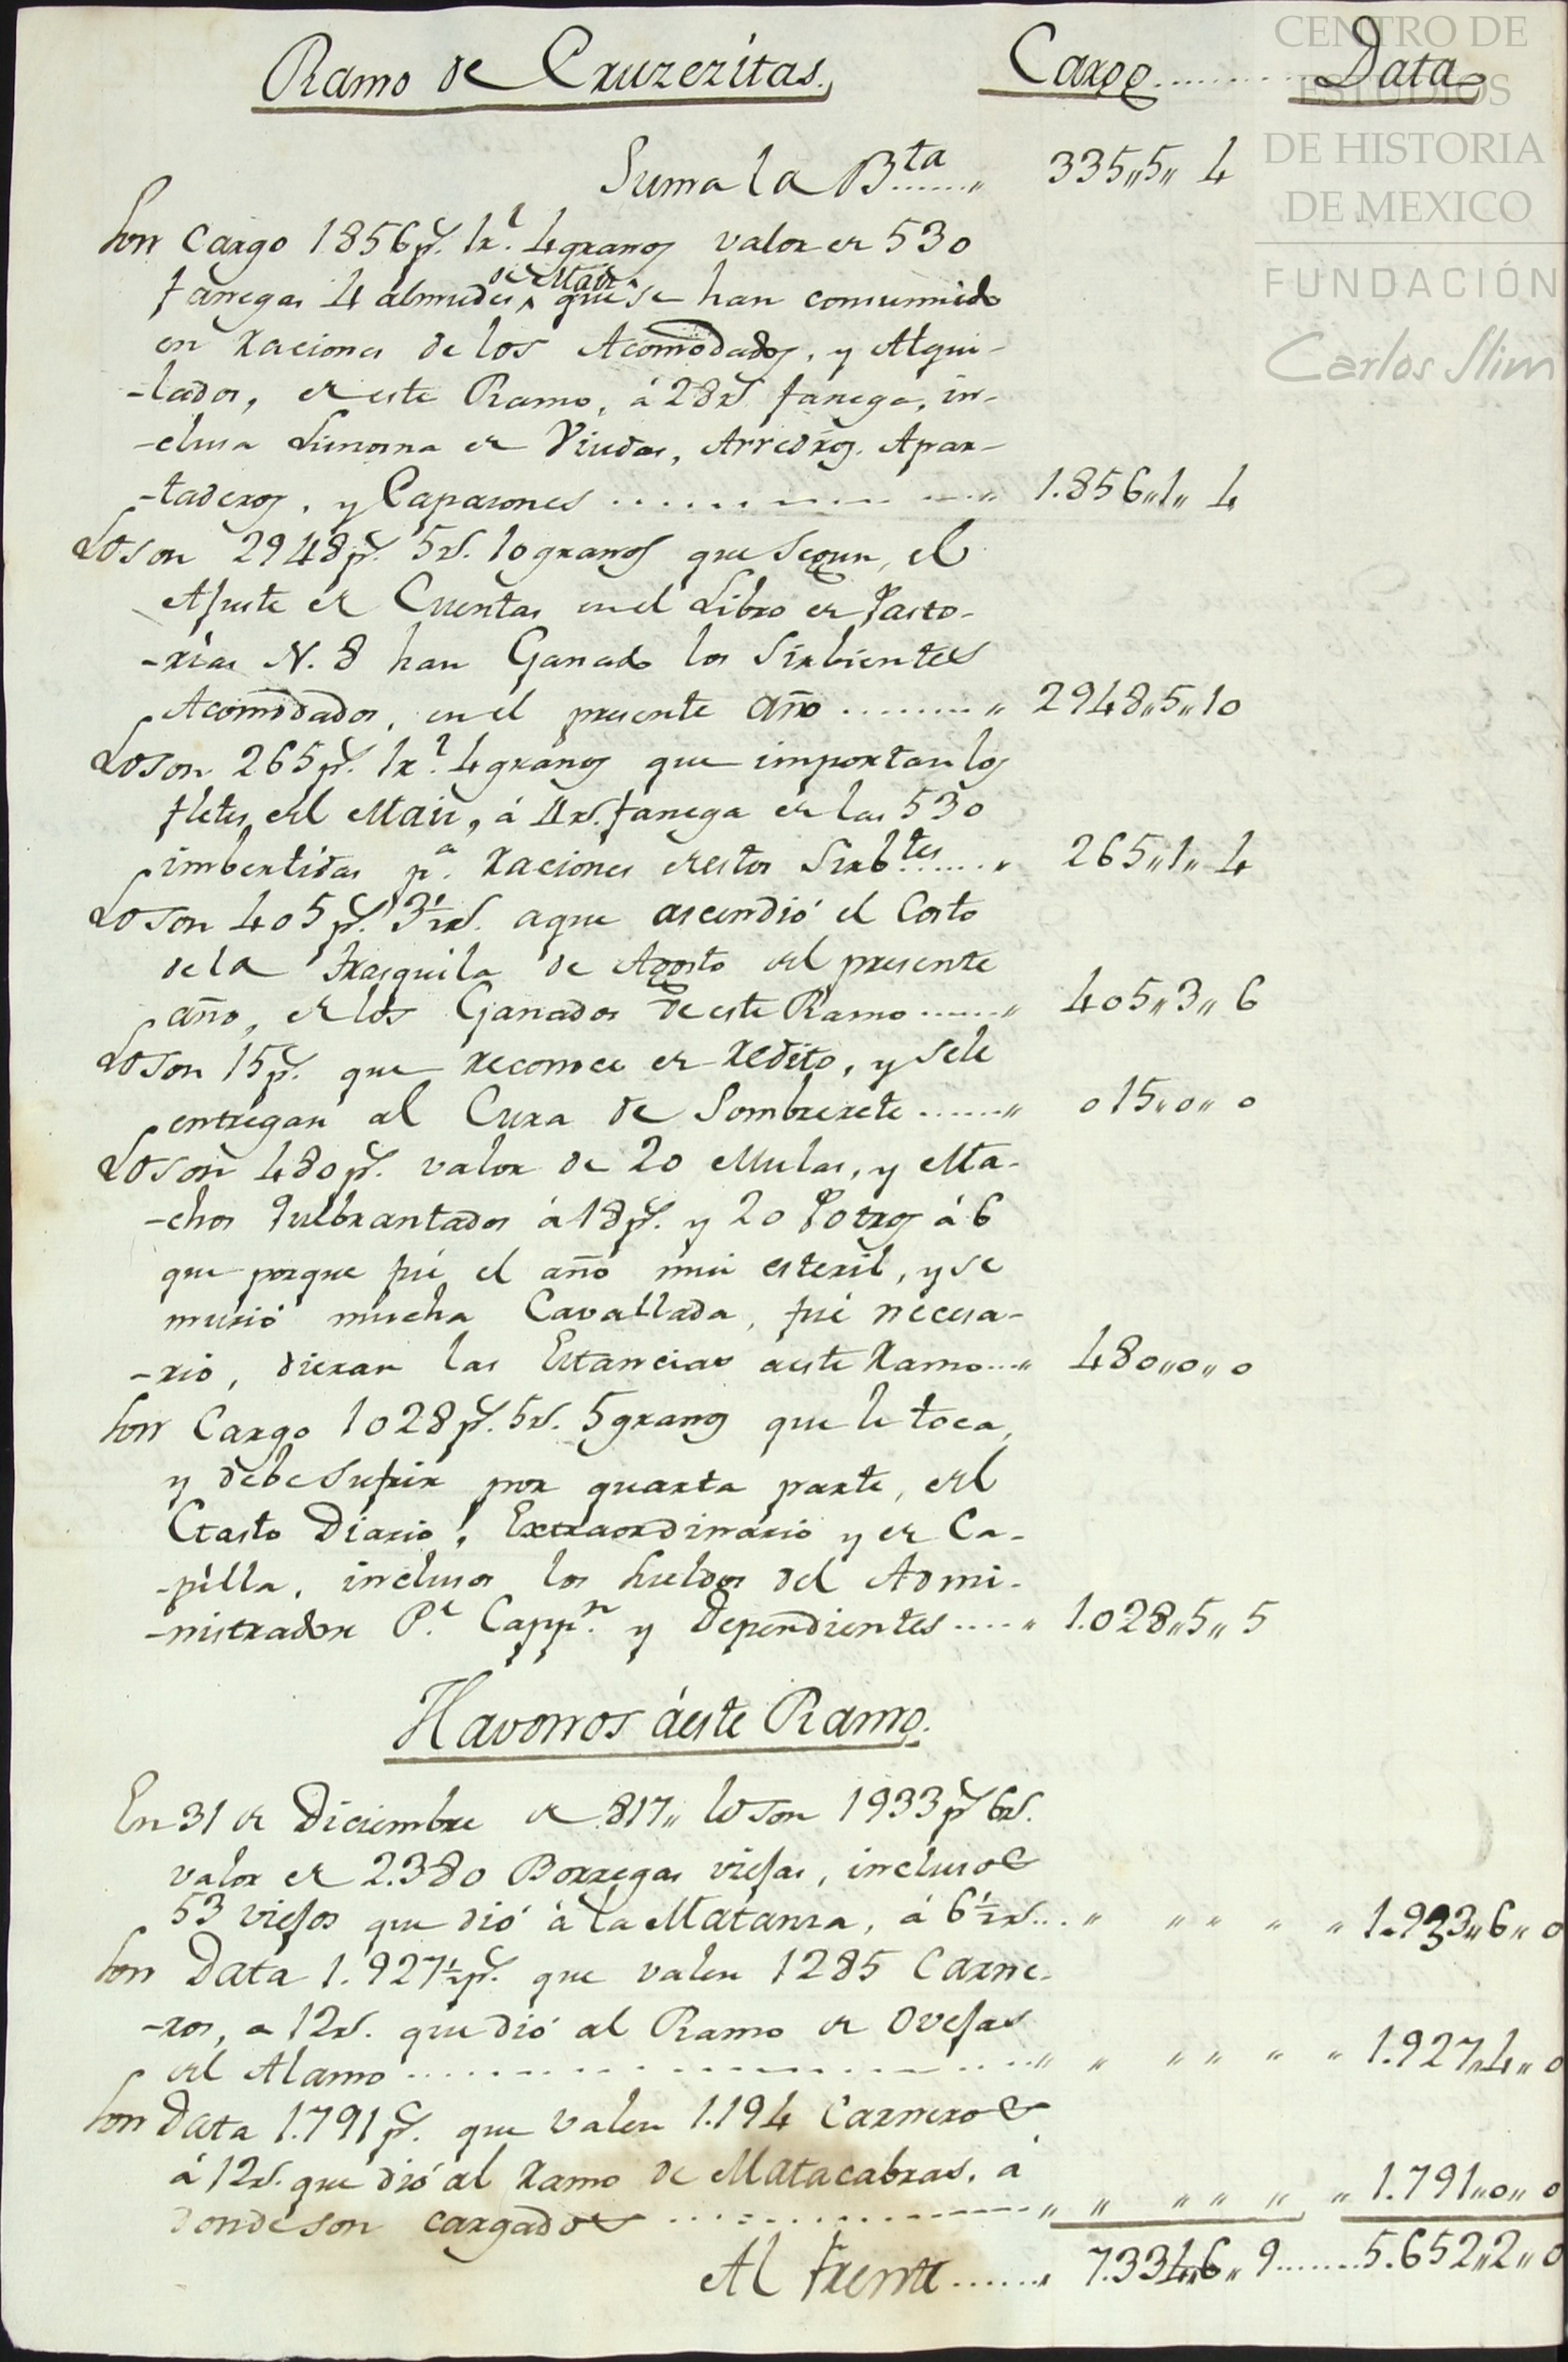 CENTRO DE
ESTUDIOS
DE HISTORIA
DE MEXICO
FUNDACIÓN
Carlos Slim
Ramo de Cruzezitas. Cargo ........ Data
Suma la B.ta ...... „ 335„5„ 4
Son Cargo 1856 p.s 1 r.l 4 granos valor de 530
fanegas 4 almudes de Maiz que se han consumido
en raciones de los Acomodados, y Alqui-
-lados, de este Ramo, á 28 rs fanega, in-
-clusa Limosna de Viudas, Arredros. Apar-
-taderos, y Capazones ........ „ 1.856„1„ 4
Lo son 2948 p.s 5 rs. 10 granos que segun, el
Ajuste de Cuentas en el Libro de Pasto-
-rias N. 8 han Ganado los Sirbientes
Acomodados, en el presente año ........ „ 2948„5„10
Lo son 265 p.s 1 r.l 4 granos que importan los
fletes del Maiz, á 4 rs. fanega de las 530
imbertidas p.a raciones de estos Sirb.tes ..... „ 265„1„ 4
Lo son 405 p.s 3½ rs. a que ascendió el Costo
de la trasquila de Agosto del presente
año, de los Ganados de este Ramo ....... „ 405„3„ 6
Lo son 15 p.s que reconoce de redito, y se le
entregan al Cura de Sombrerete ....... „ 015„0„ 0
Lo son 480 p.s valor de 20 Mulas, y Ma-
-chos Quebrantados á 18 p.s y 20 Potros á 6
que porque fué el año mui esteril, y se
murió mucha Cavallada, fué necesa-
-rio, dieran las Estancias a este Ramo .... „ 480„0„ 0
Son Cargo 1028 p.s 5 rs. 5 granos que le toca,
y debe sufrir por quarta parte, del
Gasto Diario, Extraordinario y de Ca-
-pilla, inclusos los sueldos del Admi-
-nistrador P.e Capp.n y Dependientes ..... „ 1.028„5„ 5
Havonos á este Ramo.
En 31 de Diciembre de 817„ lo son 1933 p.s 6 rs.
valor de 2.380 Borregas viejas, inclusos
53 viejos que dió á la Matanza, á 6½ rs ... „ „ „ „ „ 1.933„6„ 0
Son Data 1.927½ p.s que valen 1285 Carne-
-ros, a 12 rs. que dió al Ramo de Ovejas
del Alamo ........ „ „ „ „ „ „ 1.927„4„ 0
Son Data 1.791 p.s que valen 1.194 Carneros
á 12 rs. que dió al Ramo de Matacabras, á
donde son cargados ........ „ „ „ „ „ „ 1.791„0„ 0
Al frente ...... „ 7.334„6„ 9 ....... 5.652„2„ 0